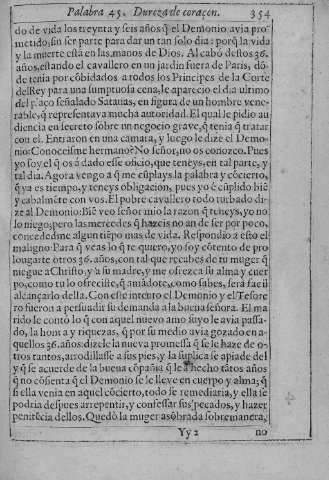 Palabra 45. Dureza de coraçon. 354
do de vida los treynta y seis años q̃ el Demonio avia pro-
metido, sin ser parte para dar un tan solo dia: porq̃ la vida
y la muerte està en las manos de Dios. Al cabo destos 36.
años, estando el cavallero en un jardin fuera de Paris, dõ-
de tenia por cõbidados a todos los Principes de la Corte
del Rey para una sumptuosa cena, le aparecio el dia ultimo
del plaço señalado Satanas, en figura de un hombre vene-
rable, q̃ representava mucha autoridad. El qual le pidio au
diencia en secreto sobre un negocio grave, q̃ tenia q̃ tratar
con el. Entraron en una camara, y luego le dize el Demo-
nio: Conoceisme hermano? No señor, no os conozco. Pues
yo soy el q̃ os â dado esse oficio, que teneys, en tal parte, y
tal dia. Agora vengo a q̃ me cũplays la palabra y cõcierto,
q̃ ya es tiempo, y teneys obligacion, pues yo è cũplido biẽ
y cabalmẽte con vos. El pobre cavallero todo turbado di-
ze al Demonio: Biẽ veo señor mio la razon q̃ teneys, yo no
lo niego; pero las mercedes q̃ hazeis no an de ser por poco,
concededme algun tiẽpo mas de vida. Respondio a esto el
maligno: Para q̃ veas lo q̃ te quiero, yo soy cõtento de pro
lougarte otros 36. años, con tal que recabes de tu muger q̃
niegue a Christo, y à su madre, y me ofrezca su alma y cuer
po, como tu lo ofreciste, q̃ amãdote, como sabes, serà facil
alcançarlo della. Con este intento el Demonio y el Tesore
ro fueron a persuadir su demanda a la buena señora. El ma
rido le contò lo q̃ con aquel nuevo amo suyo le avia passa-
do, la honra y riquezas, q̃ por su medio avia gozado en a-
quellos 36. años: dizele la nueva promessa q̃ se le haze de o-
tros tantos, arrodillasse a sus pies, y la suplica se apiade del
y q̃ se acuerde de la buena cõpañia q̃ le a hecho tãtos años
q̃ no cõsienta q̃ el Demonio se le lleve en cuerpo y alma; q̃
si ella venia en aquel cõcierto, todo se remediaria, y ella se
podria despues arrepentir, y confessar sus pecados, y hazer
penitẽcia dellos. Quedò la muger asõbrada sobremanera,
Yy 2 no